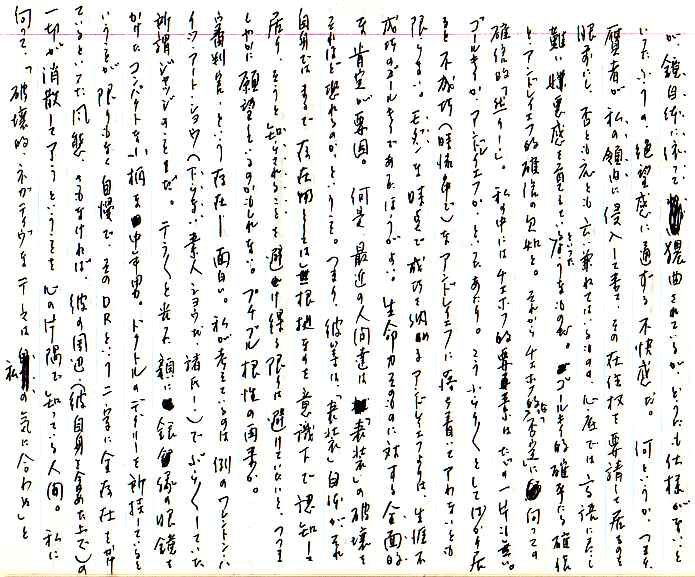 が、鏡自体に依って猥曲されているが、どうにも仕様がないと
いったふうの絶望感に通ずる不快感だ。何というか、つまり
贋者が私の領治に侵入して来て、その在住权を要請して居るのを
眼前にし、否とも応とも云い兼ねてはいるものの、心底では言語にだし
難い嫌悪感を育てて居るといったものだ。ゴールキイ的確乎たる確信
と、アンドレイエフ的確信の欠如と。それからチェホフ的否定に向っての
確信的「然り!」。私の中にはチェホフ的要素はただの一片も無い。
ゴールキイか、アンドレイエフか、といったあたり。こうふらふらとしてばかり居
ると不成功(時係命で)なアンドレイエフに落ち着いてアわないとも
限らない。モダンな時点で成功を納めるアンドレイエフよりは、生涯不
成功のゴールキイであるほうがいい。生命力そのものに対する全面的
な肯定が要因。何故、最近の人間達は「表装」の破壊を
それほど恐れるのかということ。つまり、彼等は、「表装」自体がそれ
自身ではまるで存在物としては無根拠なのを意識下で認知して
居り、そうと知らされることを避け得る限りは避けていたいと、つつま
しやかに願望しているのかもしれない。プチブル根性の由来か。
審判官、という存在―面白い。私が考えているのは例のワシントンハ
イツ・アート・ショウ(下らない素人ショウだ、諸氏!)でぶらぶらしていた
所謂ジャッジのことだ。テラテラと光る顔に銀縁の眼鏡を
かけたコンパクトな小柄な中年男。ドクトルのディグリーを所持していると
いうことが限りもなく自慢で、そのDRという二字に全存在をかけ
ているといった風態。さもなければ、彼の周辺(彼自身を含めた上で)の
一切が消散してアうということを心の片隅で知っている人間。私に
向って、「破壊的、ネガティヴなテーマは私の気に合わぬ」と